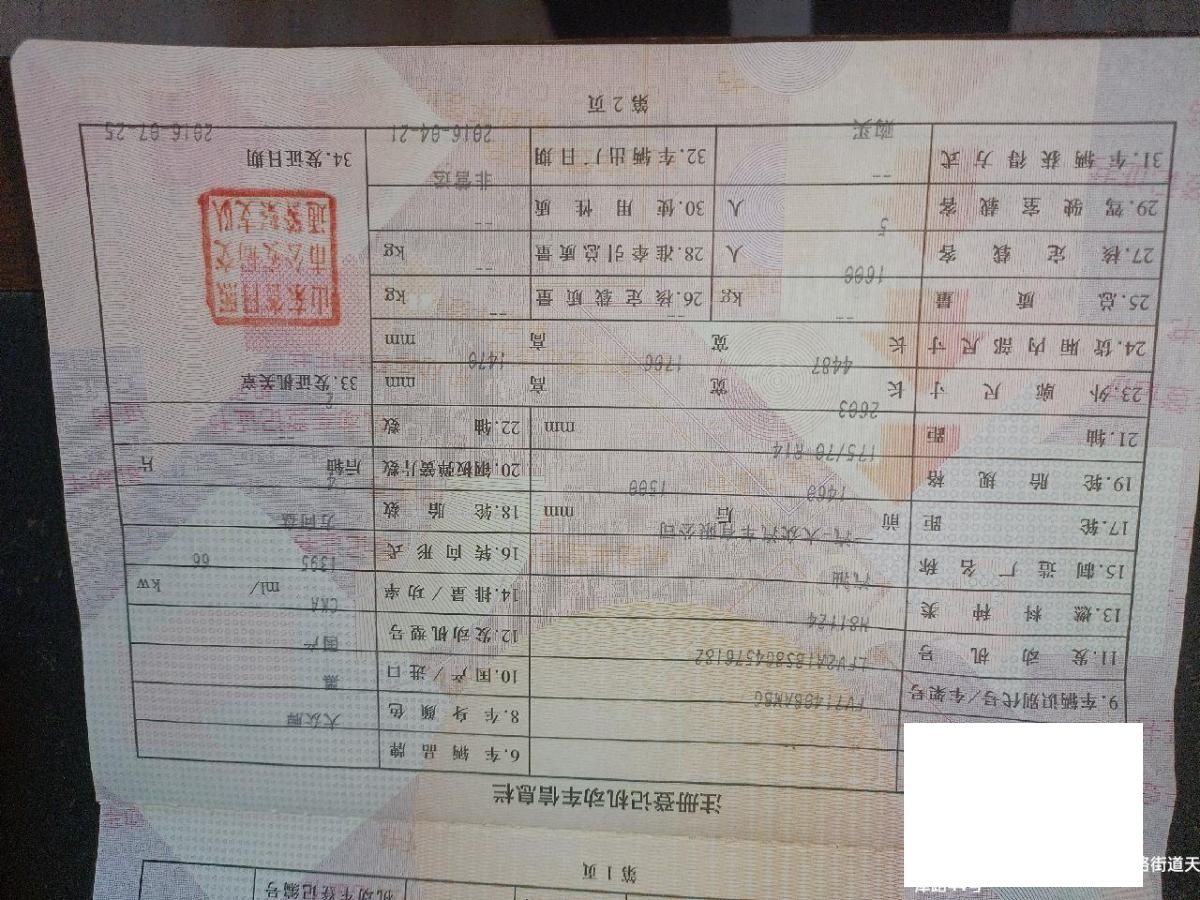 机动车登记编号
第1页
注册登记机动车信息栏
6.车辆品牌 大众牌
8.车身颜色 黑
FV7146BAMBG
9.车辆识别代号/车架号 LFV2A1BS8G4576182 10.国产/进口 国产
11.发动机号 H81124 12.发动机型号 CKA
13.燃料种类 汽油 14.排量/功率 1395 ml/ 66 kw
15.制造厂名称 一汽-大众汽车有限公司 16.转向形式 方向盘
17.轮距 前 1460 后 1500 mm 18.轮胎数 4
19.轮胎规格 175/70 R14 20.钢板弹簧片数 后轴 -- 片
21.轴距 2603 mm 22.轴数 2
23.外廓尺寸 长 4487 宽 1706 高 1470 mm 33.发证机关章
24.货厢内部尺寸 长 -- 宽 -- 高 -- mm
25.总质量 1600 kg 26.核定载质量 -- kg
27.核定载客 5 人 28.准牵引总质量 -- kg
29.驾驶室载客 -- 人 30.使用性质 非营运
31.车辆获得方式 购买 32.车辆出厂日期 2016-04-21 34.发证日期 2016-07-25
山东省日照市公安局交通警察支队
第2页
路街道天